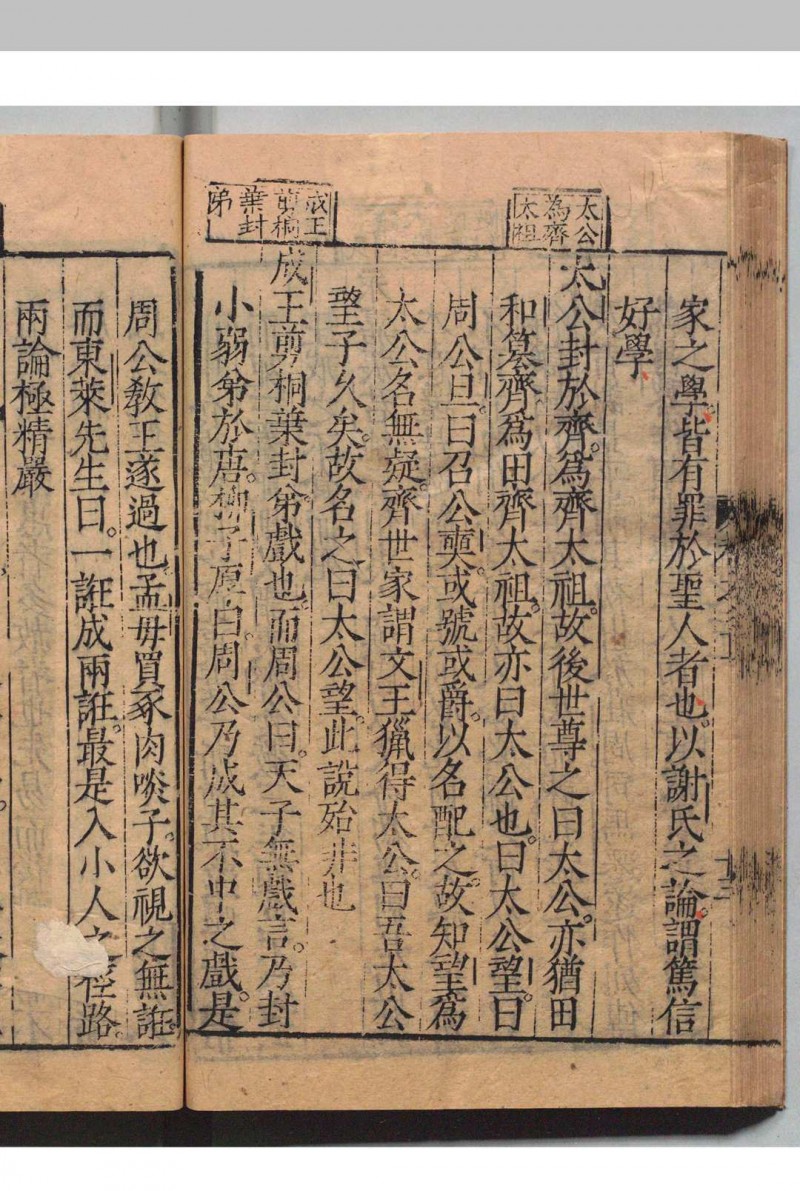 家之學皆有罪於聖人者也以謝氏之論謂篤信
好學
太公
為齊
太祖
太公封於齊為齊太祖故後世尊之曰太公亦猶田
和篡齊為田齊太祖故亦曰太公也曰太公望曰
周公旦曰召公奭或號或爵以名配之故知望為
太公名無疑齊世家謂文王獵得太公曰吾太公
望子久矣故名之曰太公望此說殆非也
成王
剪桐
葉封
弟
成王剪桐葉封弟戲也而周公曰天子無戲言乃封
小弱弟於唐柳子厚曰周公乃成其不中之戲是
周公敎王遂過也孟母買豕肉啖子欲視之無誑
而東萊先生曰一誑成兩誑最是入小人之徑路
兩論極精嚴